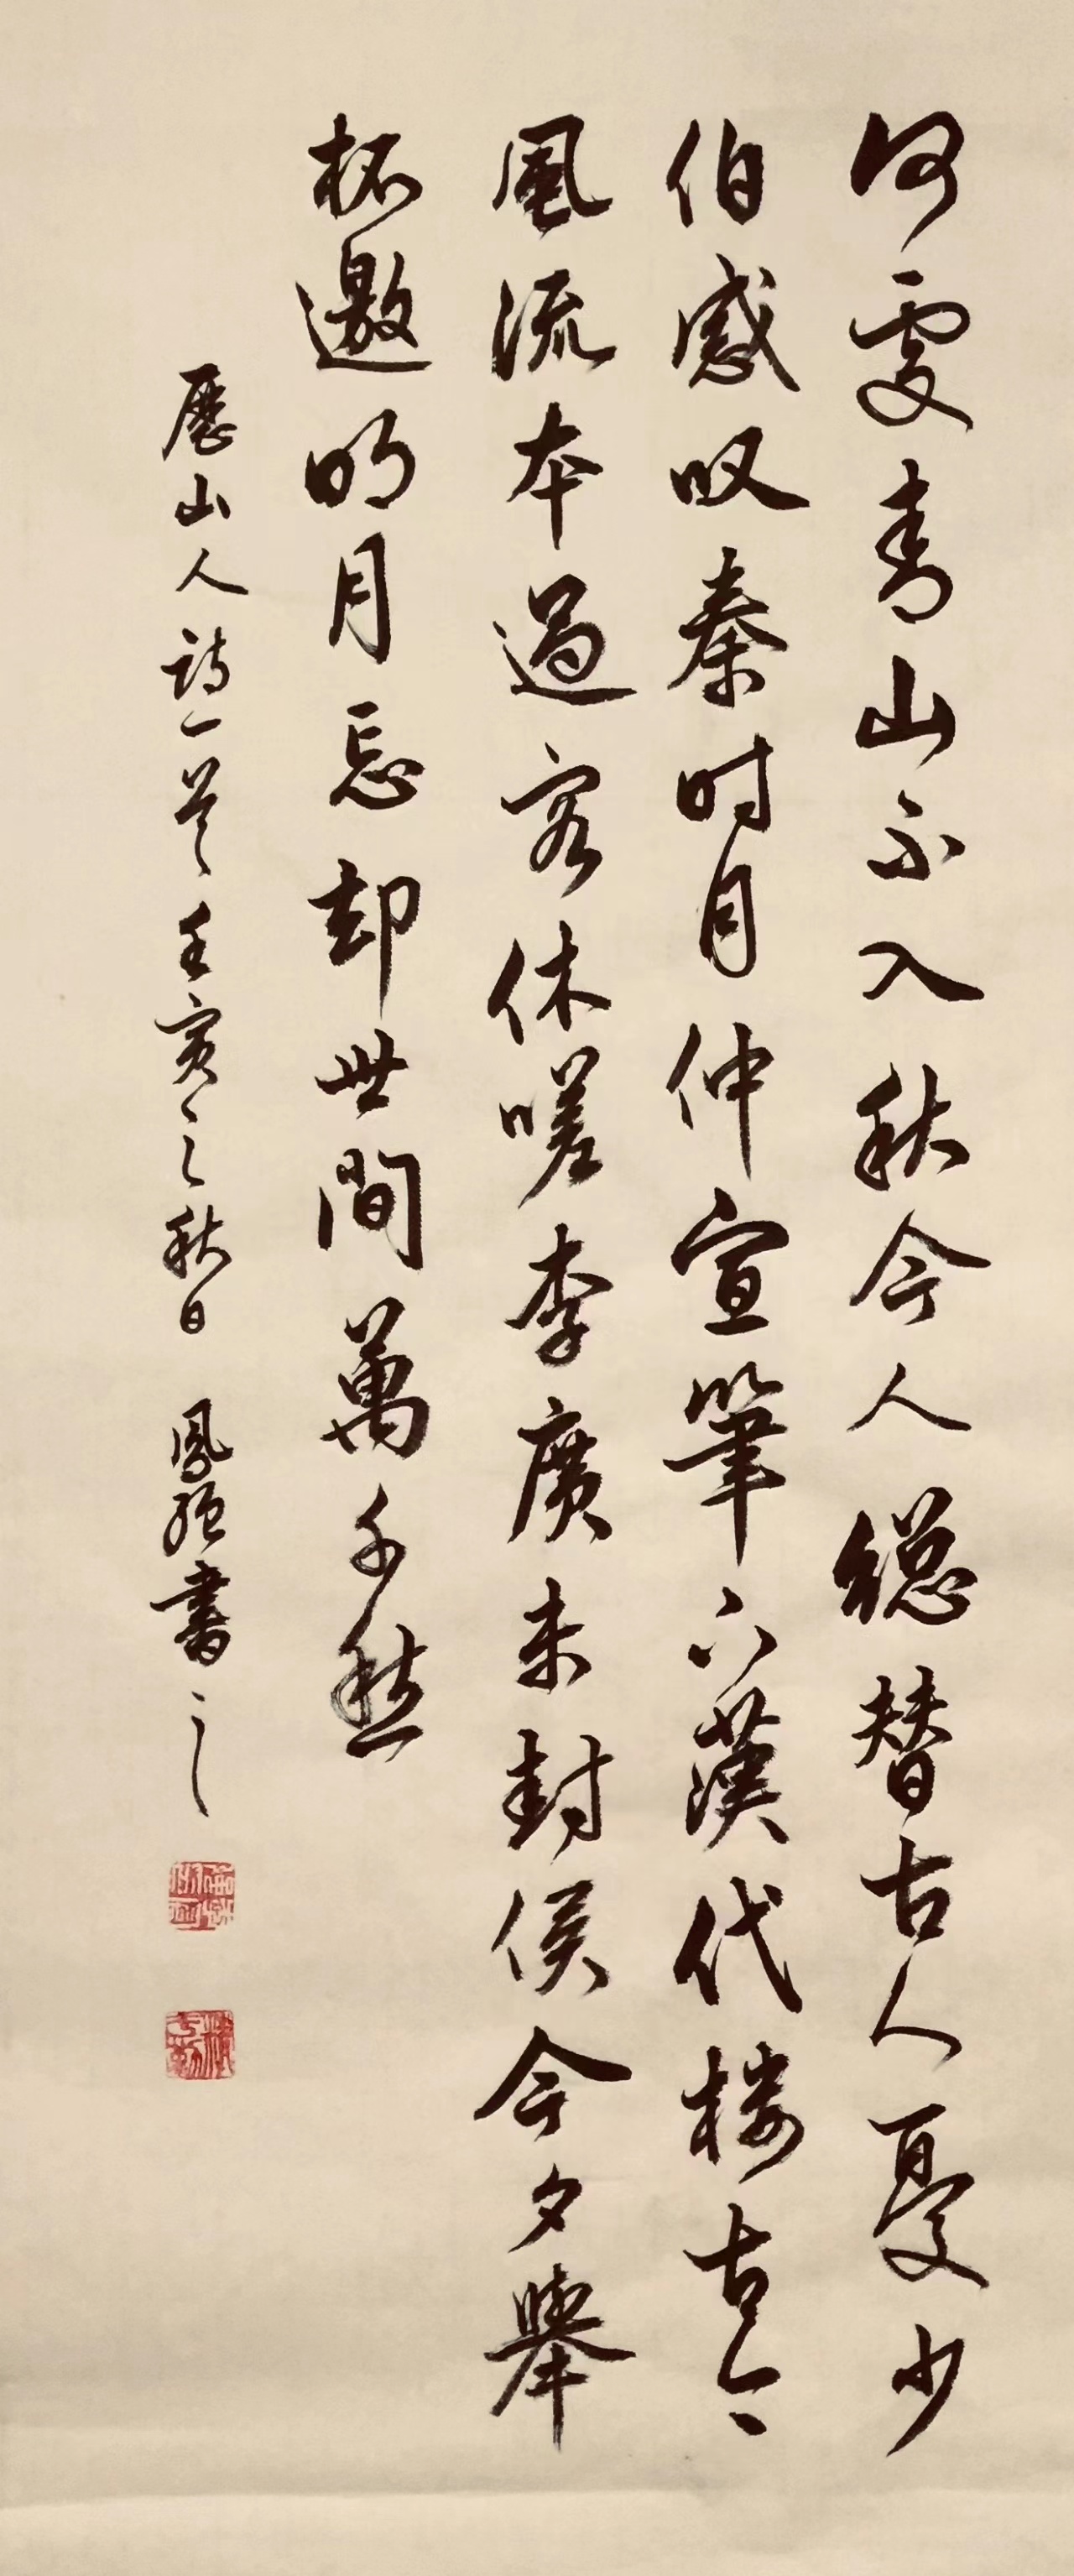 何處青山不入秋今人總替古人憂少
伯感叹秦时月仲宣筆下漢代楼古今
風流本過客休嗟李廣未封侯今夕舉
杯邀明月忘却世間萬千愁
歷山人詩一首壬寅之秋日 鳳強書之